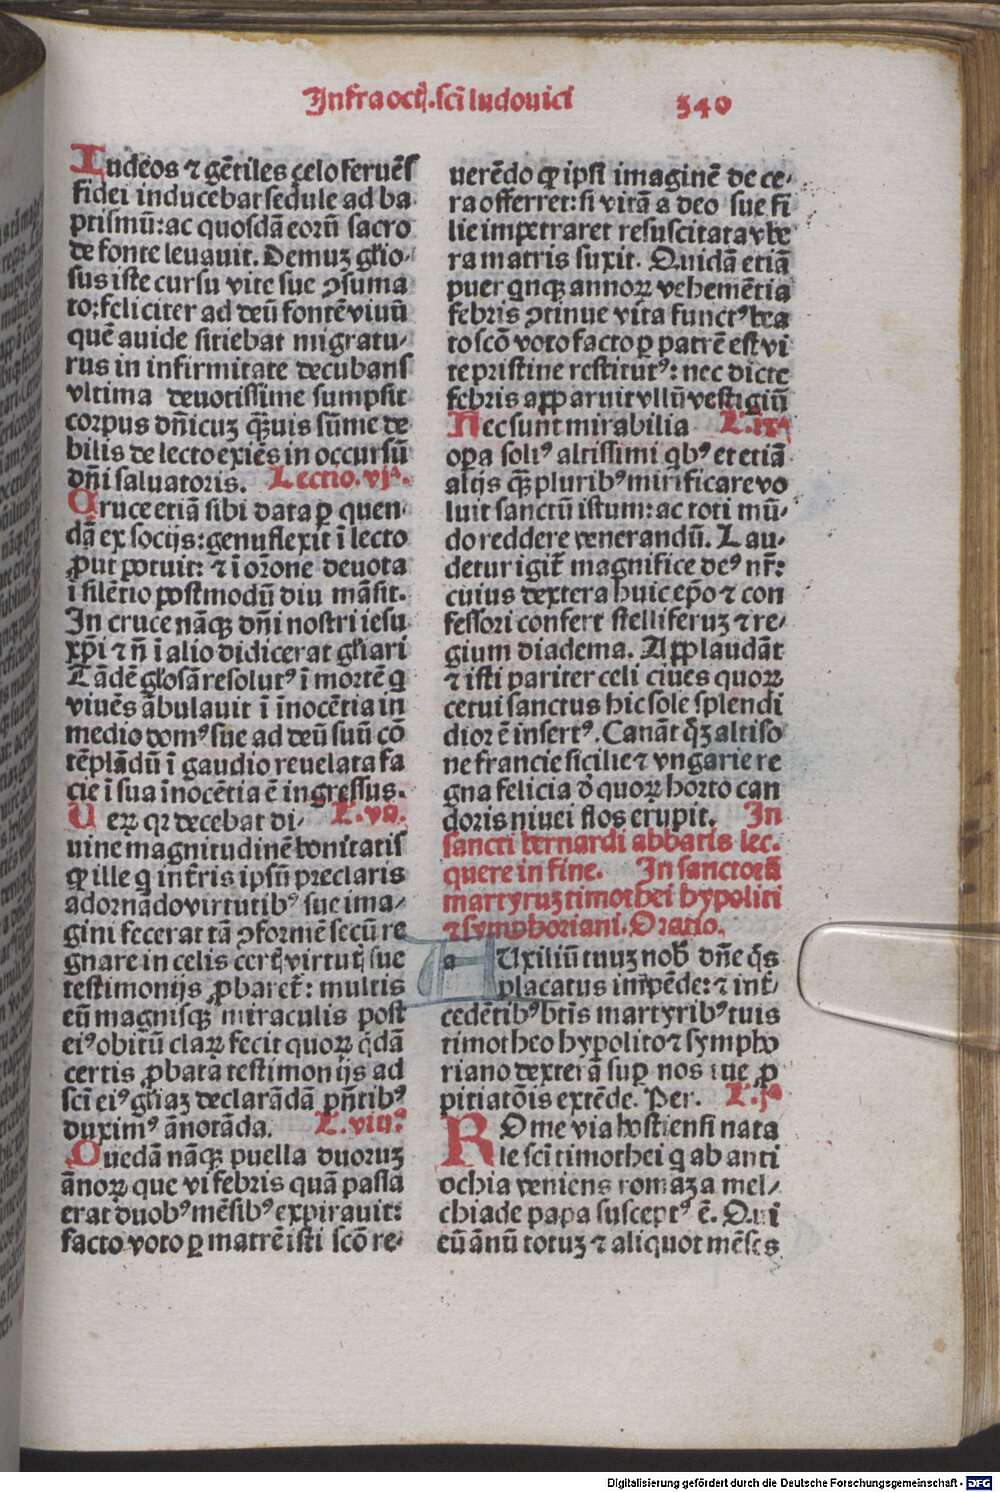 Infra oct̄. sc̄i ludouici 340
Iudeos ⁊ gētiles çelo feruēs
fidei inducebat sedule ad ba
ptismū: ac quosdā eorū sacro
de fonte leuauit. Demuꝫ gl̄io-
sus iste cursu vite sue ꝯsuma
to: feliciter ad deū fontē viuū
quē auide sitiebat migratu-
rus in infirmitate decubans
vltima deuotissime sumpsit
corpus dn̄icuꝫ qꝫuis sūme de
bilis de lecto exiēs in occursū
dn̄i saluatoris. Lectio. vjᵃ.
Cruce etiā sibi data ꝑ quen
dā ex socijs: genuflexit ī lecto
ꝓut potuit: ⁊ ī or̄one deuota
ī silētio postmodū diu māsit.
In cruce nāqꝫ dn̄i nostri iesu
xp̄i ⁊ n̄ ī alio didicerat gl̄iari
Tādē gl̄osā resolutꝰ ī mortē q
viuēs ābulauit ī īnocētia in
medio domꝰ sue ad deū suū cō
tēplādū ī gaudio reuelata fa
cie ī sua īnocētia ē ingressus.
Ueꝝ qꝛ decebat di- L. vij.
uine magnitudinē bonitatis
ꝙ ille q int̄ris ipsū preclaris
adornādo virtutibꝰ sue ima-
gini fecerat tā ꝯformē secū re
gnare in celis cert̄ virtut̄ sue
testimonijs ꝓbaret̄: multis
eū magnisqꝫ miraculis post
eiꝰ obitū claꝝ fecit quoꝝ q̄dā
certis ꝓbata testimonijs ad
sc̄i eiꝰ gl̄iaꝫ declarādā pn̄tibꝰ
duximꝰ ānotāda. L. viij.ᵃ
Quedā nāqꝫ puella duoruꝫ
ānoꝝ que vi febris quā passa
erat duobꝰ mēsibꝰ expirauit:
facto voto ꝑ matrē isti scō re-
uerēdo ꝙ ipsi imaginē de ce-
ra offerret: si vitā a deo sue fi
lie impetraret resuscitata vbe
ra matris suxit. Quidā etiā
puer qnqꝫ annoꝝ vehemētia
febris ꝯtinue vita functꝰ bea
to scō voto facto ꝑ patrē est vi
te pristine restitutꝰ: nec dicte
febris apparuit vllū vestigiū
Nec sunt mirabilia L. ixᵃ
oꝑa soliꝰ altissimi qbꝰ et etiā
alijs qꝫ pluribꝰ mirificare vo
luit sanctū istum: ac toti mū-
do reddere venerandū. Lau-
detur igit̄ magnifice deꝰ nr̄:
cuius dextera huic ep̄o ⁊ con
fessori confert stelliferuꝫ ⁊ re-
gium diadema. Applaudāt
⁊ isti pariter celi ciues quoꝝ
cetui sanctus hic sole splendi
dior ē insertꝰ. Canāt qꝫ altiso
ne francie sicilie ⁊ vngarie re
gna felicia d̄ quoꝝ horto can
doris niuei flos erupit. In
sancti bernardi abbatis lec.
quere in fine. In sanctoꝝ
martyruꝫ timothei hypoliti
⁊ symphoriani. Oratio.
aUxiliū tuuꝫ nob̄ dn̄e q̄s
placatus impēde: ⁊ int̄-
cedētibꝰ btīs martyribꝰ tuis
timotheo hypolito ⁊ sympho
riano dexterā suꝑ nos tue ꝓ
pitiatōis extēde. Per. L. jᵃ
ROme via hostiensi nata
le sc̄i timothei q ab anti
ochia veniens romaꝫ a mel-
chiade papa susceptꝰ ē. Qui
cū ānū totuꝫ ⁊ aliquot mēses
Digitalisierung gefördert durch die Deutsche Forschungsgemeinschaft - DFG